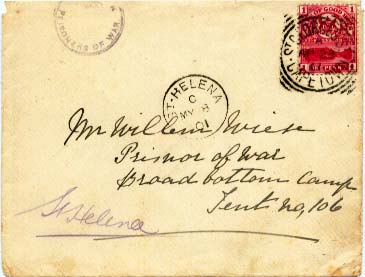 PRISONERS OF WAR
1 OF GOOD 1
CAPETOWN
ST. HELENA
C
MY 8
01
Mr Willem Wiese
Prisnor of War
Broad bottom Camp
Tent no, 106
St Helena